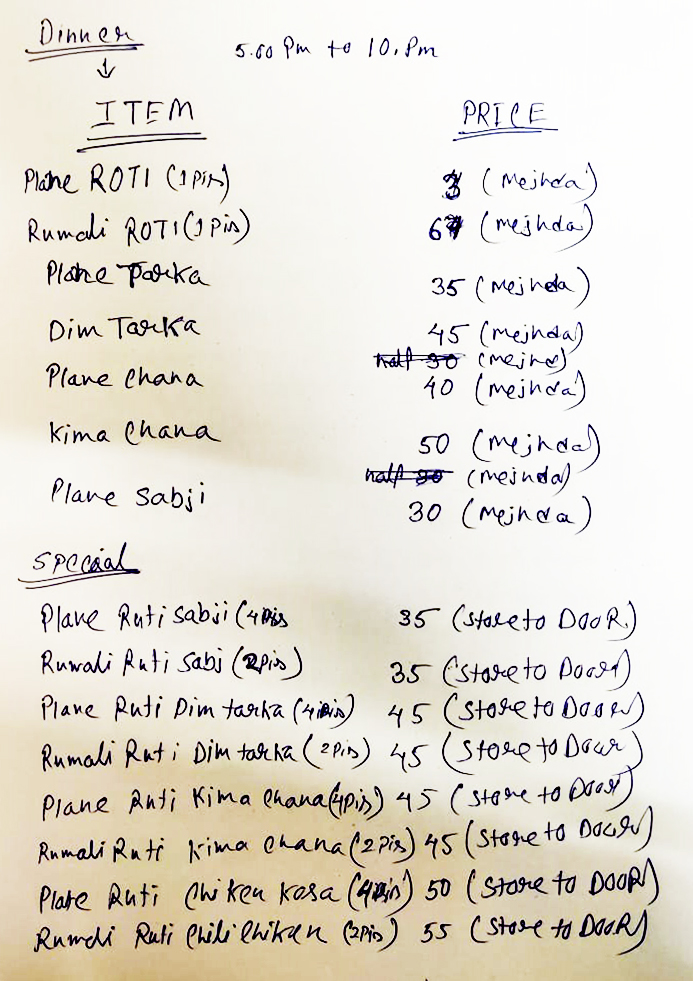 Dinner 5.00 Pm to 10. Pm
ITEM PRICE
Plane ROTI (1 Pis) 3 (Mejhda)
Rumali ROTI (1 Pis) 6 (mejhda)
Plane Tarka 35 (Mejhda)
Dim Tarka 45 (Mejhda)
half 30 (mejhd)
Plane Chana 40 (mejhda)
Kima Chana 50 (Mejhda)
half (mejhda)
Plane Sabji 30 (Mejhda)
Special
Plane Ruti Sabji (4 Pis 35 (Store to DooR)
Rumali Ruti Sabj (2 Pis) 35 (Store to Door)
Plane Ruti Dim tarka (4 Pis) 45 (Store to Door)
Rumali Ruti Dim tarka (2 Pis) 45 (Store to Door)
Plane Ruti Kima Chana (4 Pis) 45 (Store to Door)
Rumali Ruti Kima Chana (2 Pis) 45 (Store to Door)
Plate Ruti Chiken Kosa (4 Pis) 50 (Store to DOOR)
Rumali Ruti Chili Chiken (2 Pis) 55 (Store to DooR)